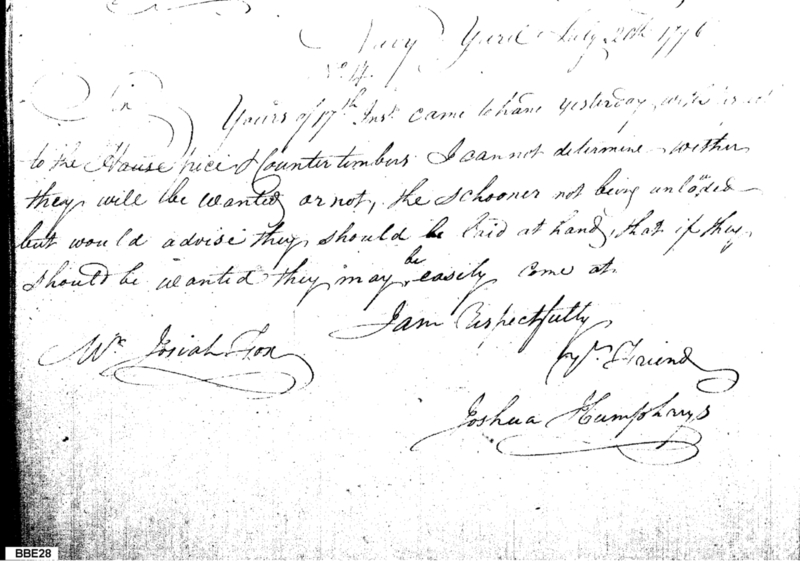 Navy Yard July 20th 1796
No 14.
Sir
Yours of 17th Inst. came to hand yesterday with respect
to the Hause pieces & Counter timbers I cannot determine wether
they will be wanted or not, the schooner not being unloaded
but would advise they should be laid at hand, that if they
should be wanted they may be easily come at.
I am Respectfully
yr Friend
Mr Josiah Fox
Joshua Humphreys
BBE28